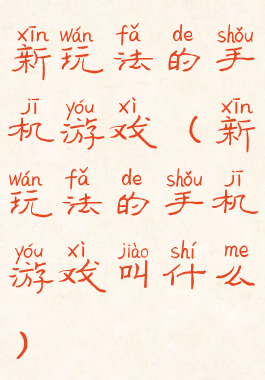 xīn wán fǎ de shǒu
新玩法的手
jī yóu xì xīn
机游戏(新
wán fǎ de shǒu jī
玩法的手机
yóu xì jiào shí me
游戏叫什么
)